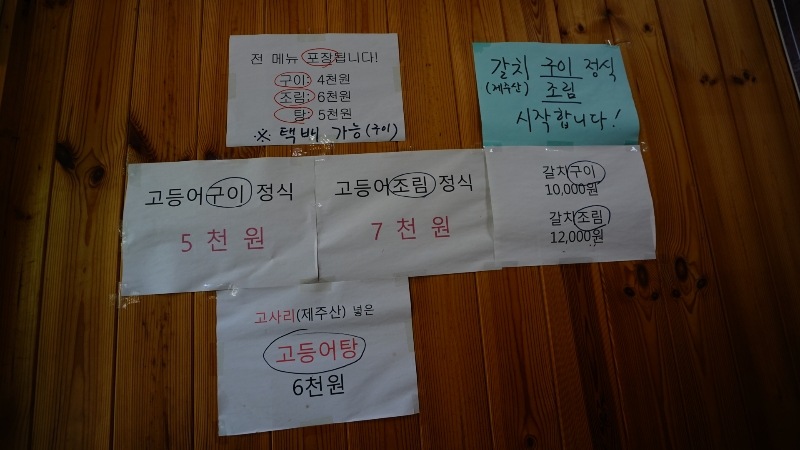 전 메뉴 포장됩니다!
구이: 4천원
조림: 6천원
탕: 5천원
※ 택배 가능(구이)
갈치 구이 정식
(제주산) 조림
시작합니다!
고등어구이 정식
5 천 원
고등어조림 정식
7 천 원
갈치구이
10,000원
갈치조림
12,000원
고사리(제주산) 넣은
고등어탕
6천원